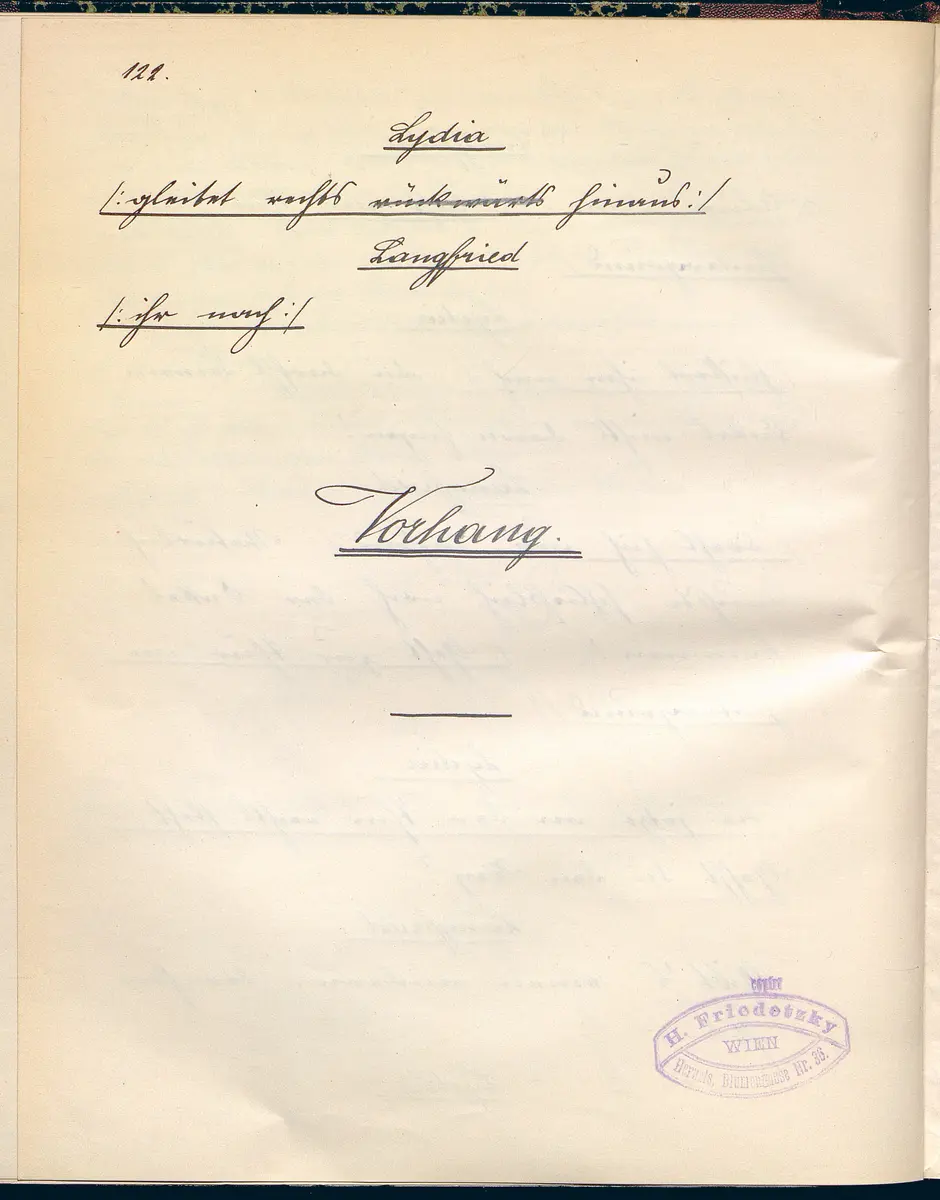 122.
Lydia
/: gleitet rechts rückwärts hinaus :/
Langfried
/: ihr nach :/
Vorhang.
copirt
H. Friedetzky
WIEN
Hernals, Blumengasse Nr. 36.